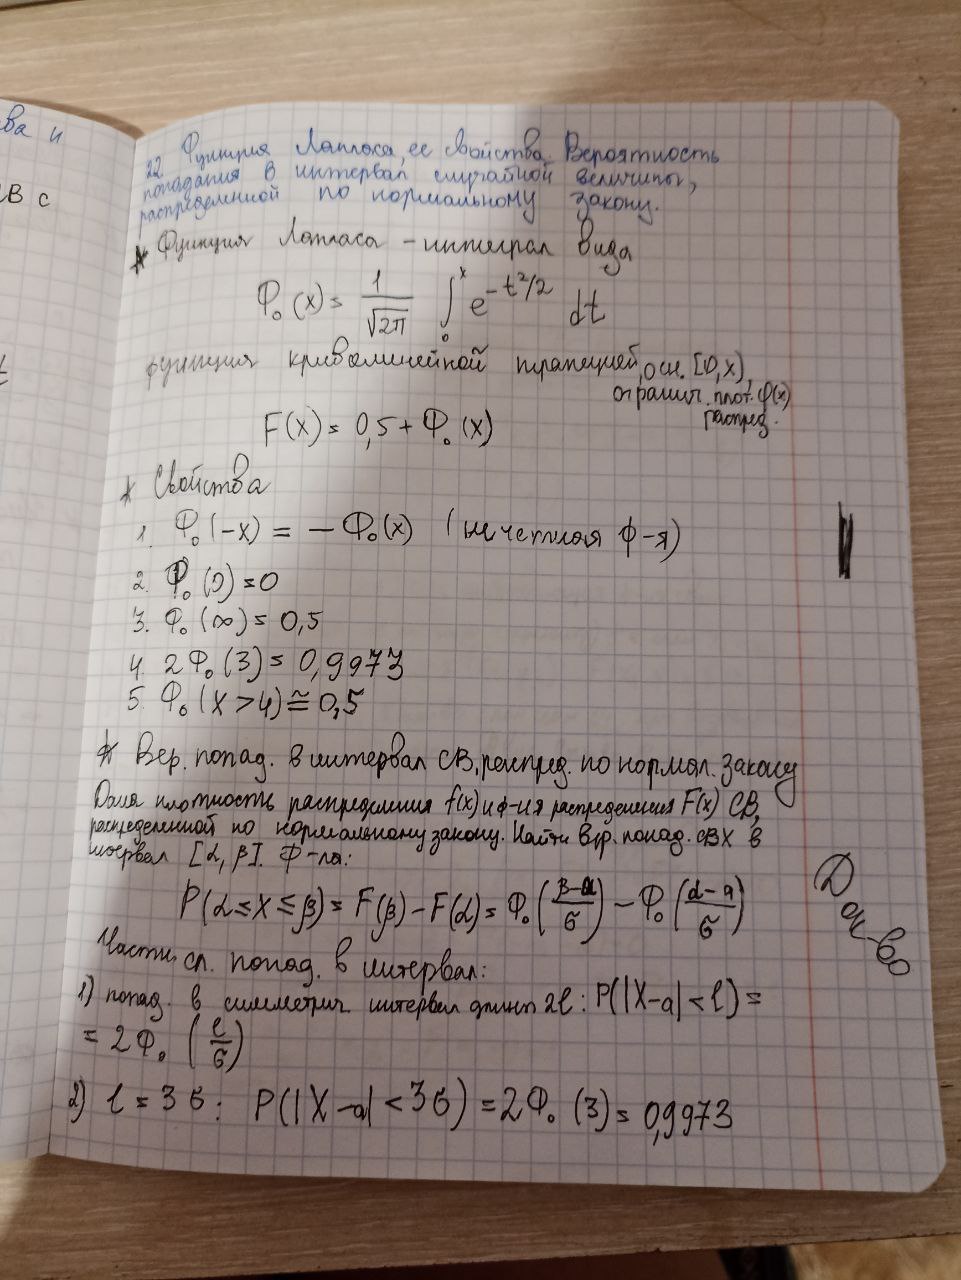 ва и
СВ с
22. Функция Лапласа, ее свойства. Вероятность
попадания в интервал случайной величины,
распределенной по нормальному закону.
* Функция Лапласа – интеграл вида
Ф₀(x) = 1/√2π ∫₀ˣ e^(-t²/2) dt
функция криволинейной трапецией, осн. [0, x],
огранич. плот. φ(x)
распред.
F(x) = 0,5 + Ф₀(x)
* Свойства
1. Ф₀(-x) = – Ф₀(x) (нечетная ф-я)
2. Ф₀(0) = 0
3. Ф₀(∞) = 0,5
4. 2Ф₀(3) = 0,9973
5. Ф₀(x > 4) ≅ 0,5
* Вер. попад. в интервал СВ, распред. по нормал. закону
Дана плотность распределения f(x) и ф-ия распределения F(x) СВ,
распределенной по нормальному закону. Найти вер. попад. СВ X в
интервал [α, β]. Ф-ла:
P(α ≤ X ≤ β) = F(β) – F(α) = Ф₀((β-a)/σ) – Ф₀((α-a)/σ)
Док-во
Частн. сл. попад. в интервал:
1) попад. в симметрич. интервал длины 2l: P(|X-a| < l) =
= 2Ф₀(l/σ)
2) l = 3σ: P(|X-a| < 3σ) = 2Ф₀(3) = 0,9973